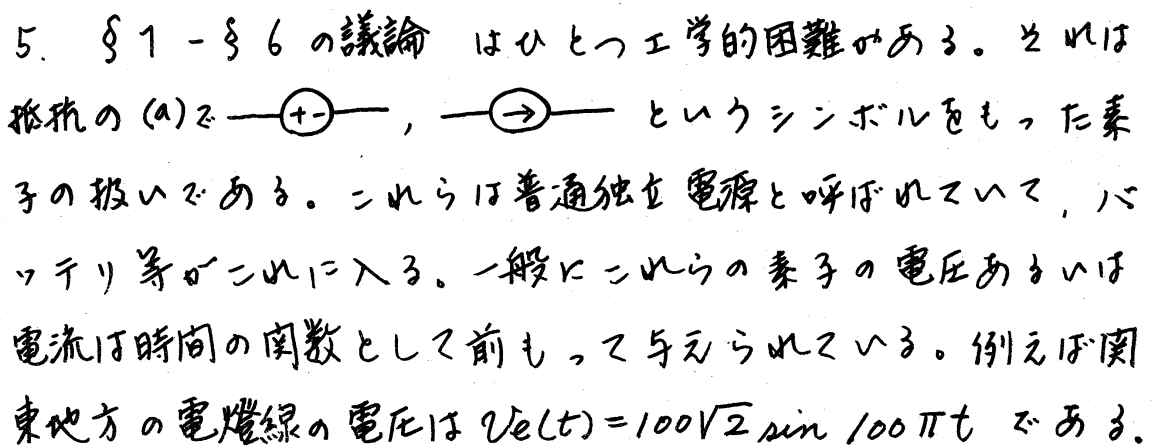 5. §1-§6の議論 はひとつ工学的困難がある。それは
抵抗の(a)で —(+-)—, —(→)— というシンボルをもった素
子の扱いである。これらは普通独立電源と呼ばれていて, バ
ッテリ等がこれに入る。一般にこれらの素子の電圧あるいは
電流は時間の関数として前もって与えられている。例えば関
東地方の電燈線の電圧は Ve(t)=100√2 sin 100πt である.